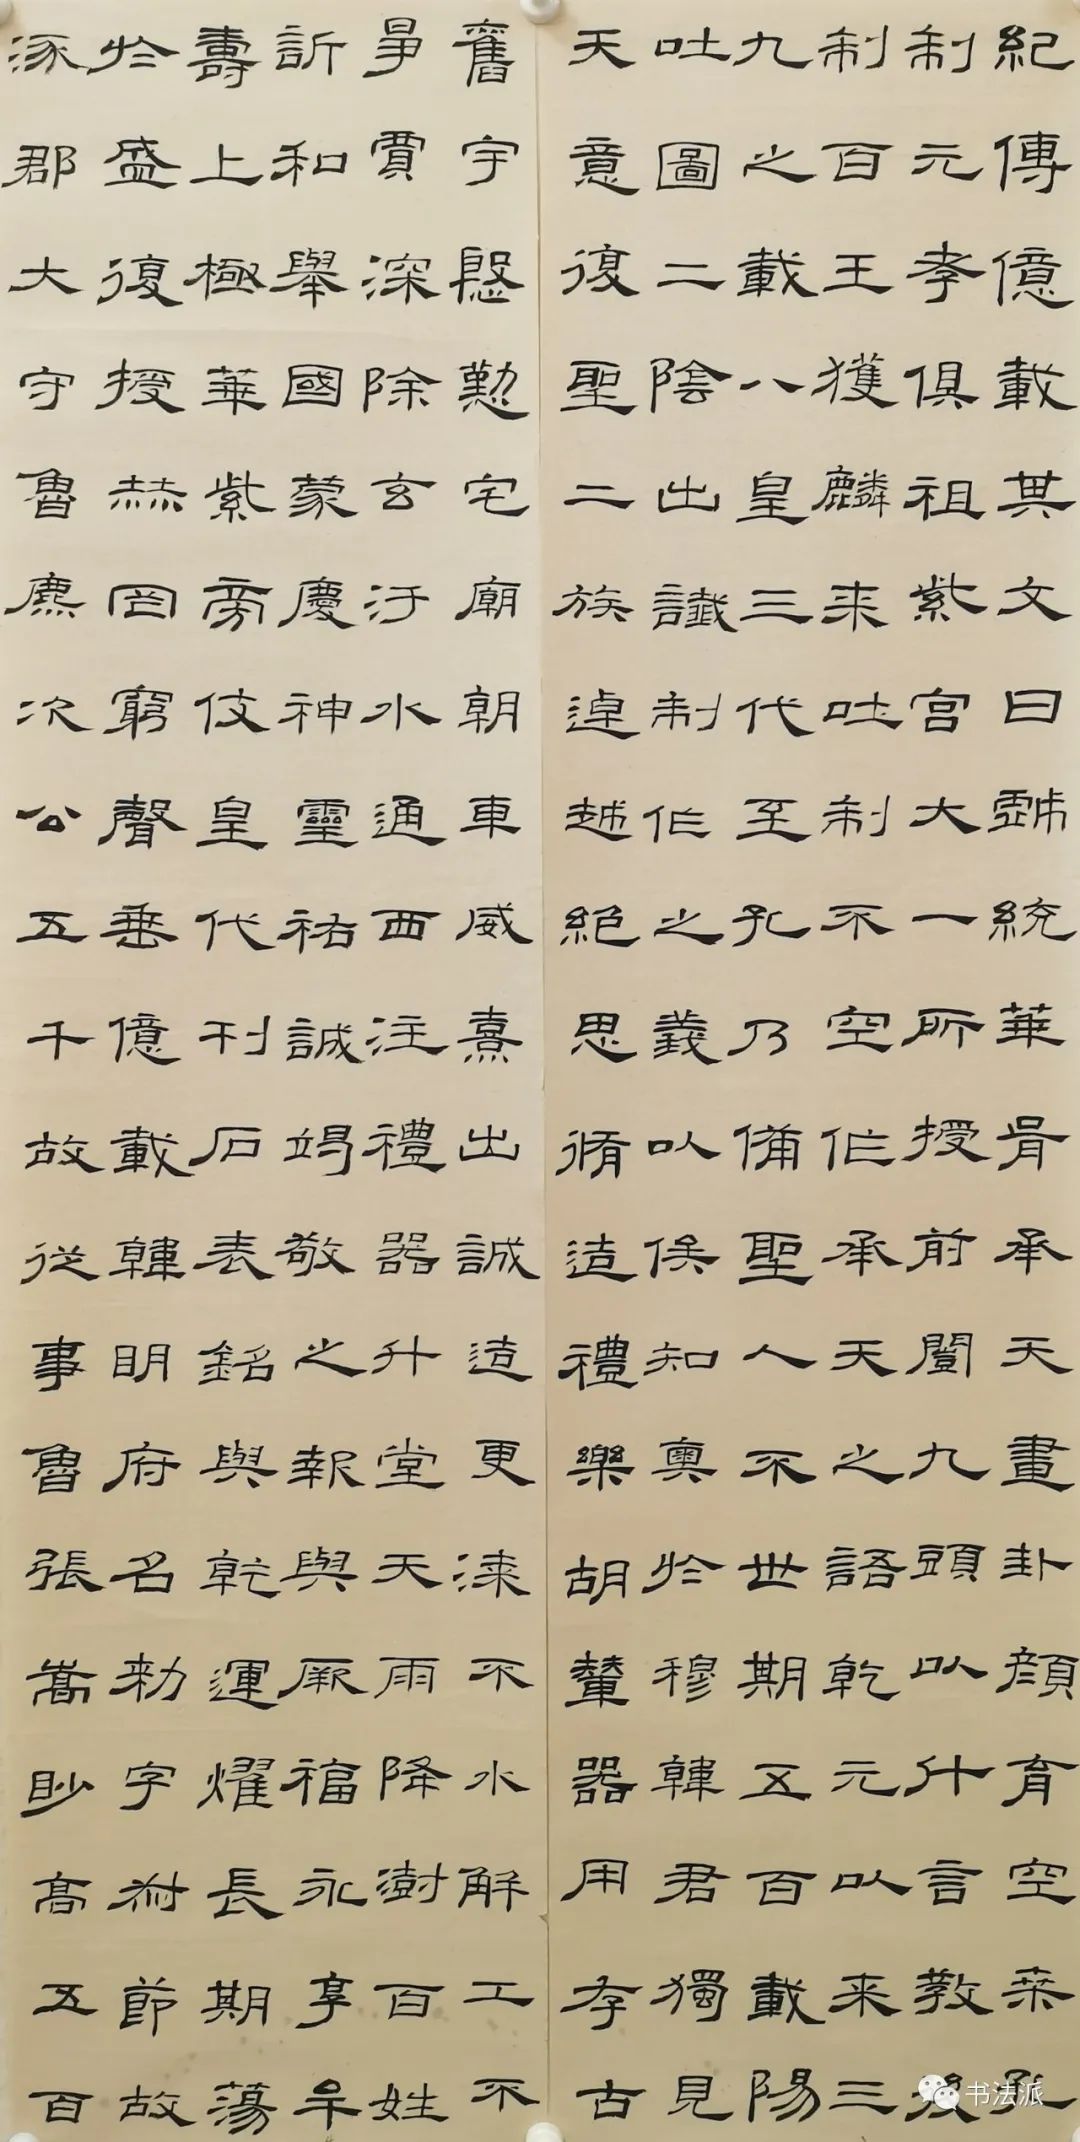 紀傳億載其文曰戲統華胥承天畫卦顏育空桒孔
制元孝俱祖紫宮大一所授前闓九頭以什言教後
制百王獲麟来吐制不空作承天之語乾元以来三
九之載八皇三代至孔乃備聖人不世期五百載陽
吐圖二陰出讖制作之義以俟知奧於穆韓君獨見
天意復聖二族逴越絕思脩造禮樂胡輦器用存古
舊宇慇懃宅廟朝車威熹出誠造更漆不水解工不
爭賈深除玄汙水通西注禮器升堂天雨降澍百姓
訢和舉國蒙慶神靈祐誠竭敬之報與厥福永享牟
壽上極華紫旁伎皇代刊石表銘與乾運燿長期蕩
於盛復授赫罔窮聲垂億載韓明府名勑字叔節故
涿郡大守魯麃次公五千故從事魯張嵩眇高五百
书法派